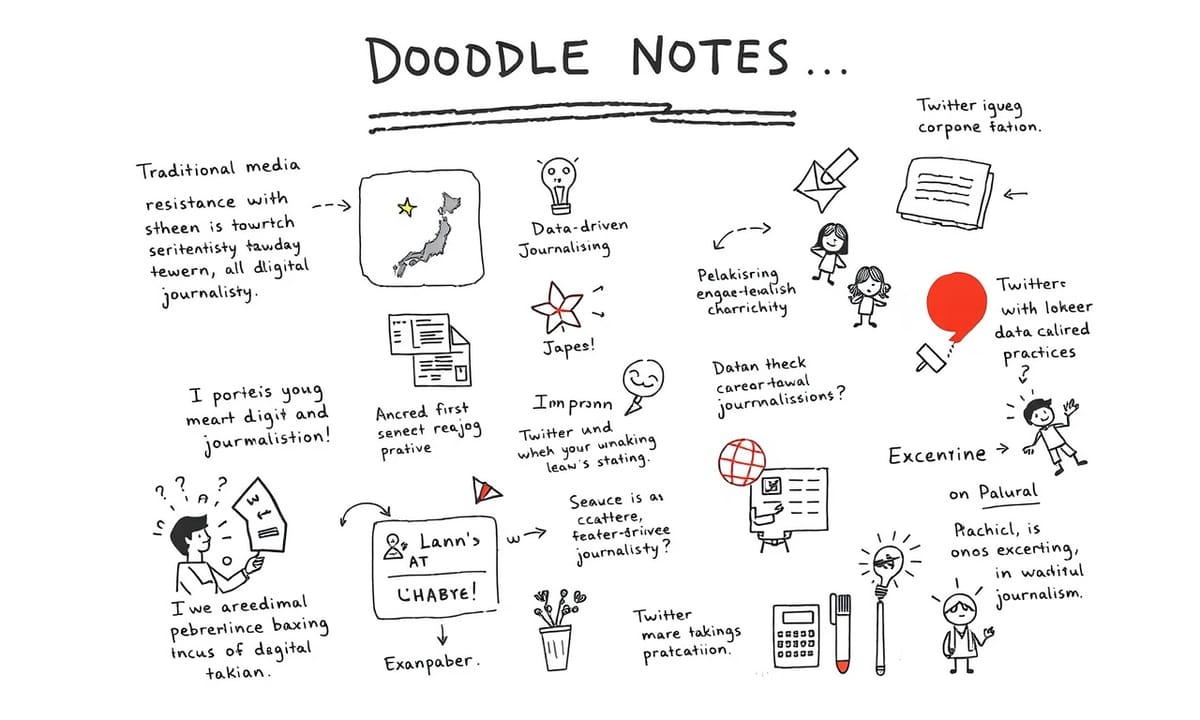 DOODDLE NOTES...
Traditional media
resistance with
stheen is towrtch
seritentisty tawday
tewern, all dligital
journalisty.
Data-driven
Journalising
Japes!
Twitter igueg
corpone fation.
Pelakisring
engae-teralish
charrichity
Twitters
with lokeer
data calired
practices
?
I porteis youg
meart digit and
jourmalistion!
Ancred first
senect reajog
prative
Imprann
Twitter und
wheh your wnaking
leaw's stating.
Datan theck
career-tawal
journalissions?
Excentine
on Palural
Rachicl, is
onos excerting,
in waditul
journalism.
? ? ?
I we areedimal
pebrerlince baxing
incus of dagital
takian.
Lann's
AT
CHABYE!
w
Exanpaber.
Seauce is as
ccattere,
feater-driivee
journalisty?
Twitter
mare takings
pratcatiion.